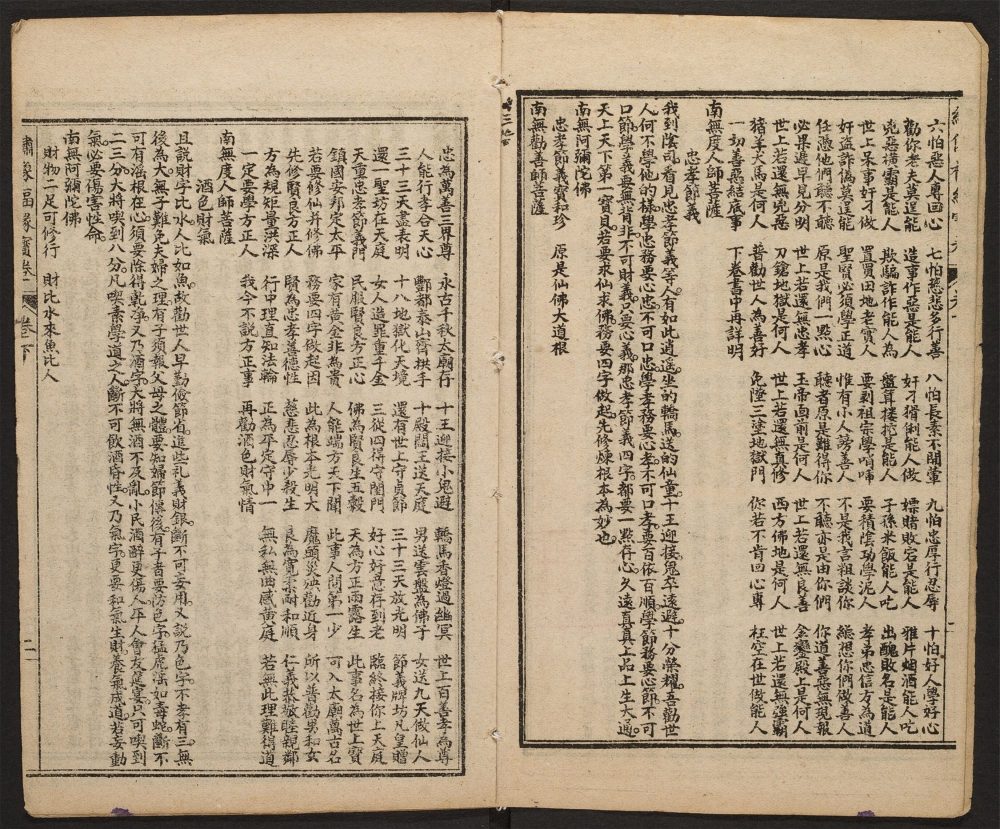 六怕惡人專回心　七怕慈悲多行善　八怕長素不開葷　九怕忠厚行忍辱　十怕好人學好心
勸你孝夫莫逞能　造事作惡是能人　奸才猾俐能人做　標賭敗宕是能人　雅片烟酒能人吃
兇惡橫霸是能人　欺騙詐作能人為　盤算搂挖是能人　子孫米飯能人吃　出醜敗名是能人
世上呆事奸才做　置買因地老實人　要到祖宗學啃啼　要積陰功學泥人　孝弟忠信方為道
奸盜詐偽莫逞能　聖賢必須學正道　惟有小人謗善人　不是我言祖談你　總想你們做善人
任憑他們聽不聽　原是我們一點心　聽者原是難得你　不聽亦是由你們　你道善惡無現報
必果遲早見分明　世上若還無忠孝　玉帝面前是何人　世上若還無良善　金鑾殿上是何人
世上若還無兇惡　刀鎗地獄是何人　世上若還無真修　西方佛地是何人　世上若還無強霸
猪羊犬馬是何人　普勸世人為善好　免墮三塗地獄門　你若不肯回心專　枉空在世做能人
一切善惡結底事　下卷書中再詳明
南無度人師菩薩
忠孝節義
我到陰司看見忠孝節義等人有如此逍遥坐的轎馬送的仙童十王迎接鬼卒遠避十分榮耀吾勸世
人何不學他的樣學忠務要心忠不可口忠學孝務要心孝不可口孝要百依百順學節務要心節不可
口節學義要無背非不可財義只要心義那忠孝節義四字都要一點存心久遠真真上品上生大過
天上天下第一寶貝若要求仙求佛務要四字做起先修煉根本為妙也
南無阿彌陀佛
忠孝節義寶和珍　原是仙佛大道根
南無勸善師菩薩
忠為萬善三界尊　永古千秋太廟行　十王迎接小鬼避　轎馬香燈過幽冥　世上百善孝為尊
人能行孝合天心　酆都泰山齊拱手　十殿閻王送天庭　男送雲盤為佛子　女送九天做仙人
三十三天盡表明　十八地獄化天境　還有世上守貞節　三十三天放光明　節義牌坊凡皇贈
還一聖坊在天庭　女人造罪重千金　三從四得守閨門　好心好意存到老　臨終接你上天庭
天大重忠孝節義門　民服賢良方正心　佛為賢良生五穀　天為方正雨露生　此事名為世上寶
鎮國安邦定太平　家有黃金非為貴　人能端方天下聞　此事人間第一少　可入太廟萬古名
若要修仙并修佛　務要四字做起因　此為根本光明大　魔頭災殃勸近身　所以普勸男和女
先修賢良方正人　賢為忠孝善德性　慈悲忍辱少殺生　良為寬柔耐和順　仁義恭敬睦親鄰
方為規矩量洪深　行中理直知法輪　正為平定守中一　無私無曲感黃庭　若無此理難得道
一定要學方正人　我今不說方正事　再勸酒色財氣情
南無度人師菩薩
酒色財氣
且說財字比水人比如魚故勸世人早勤儉節省進些礼義財銀斷不可妄用又說乃色字不孝有三無
後為大無子難免夫婦之理有子須報父母之體要知婦節傳後有子者要防色字猛虎淫如毒蛇斷不
可有淫根在心須要除得乾淨又乃酒字大將無酒不及亂小民酒醉更傷人平人會友是宴只可喫到
二三分大將喫到八分凡喫素學道之人斷不可飲酒昏性又乃氣字更要和氣生財養氣成道若妄動
氣必要傷害性命
南無阿彌陀佛
財物二足可修行　財比水來魚比人
繡像福緣寶卷　卷下　二